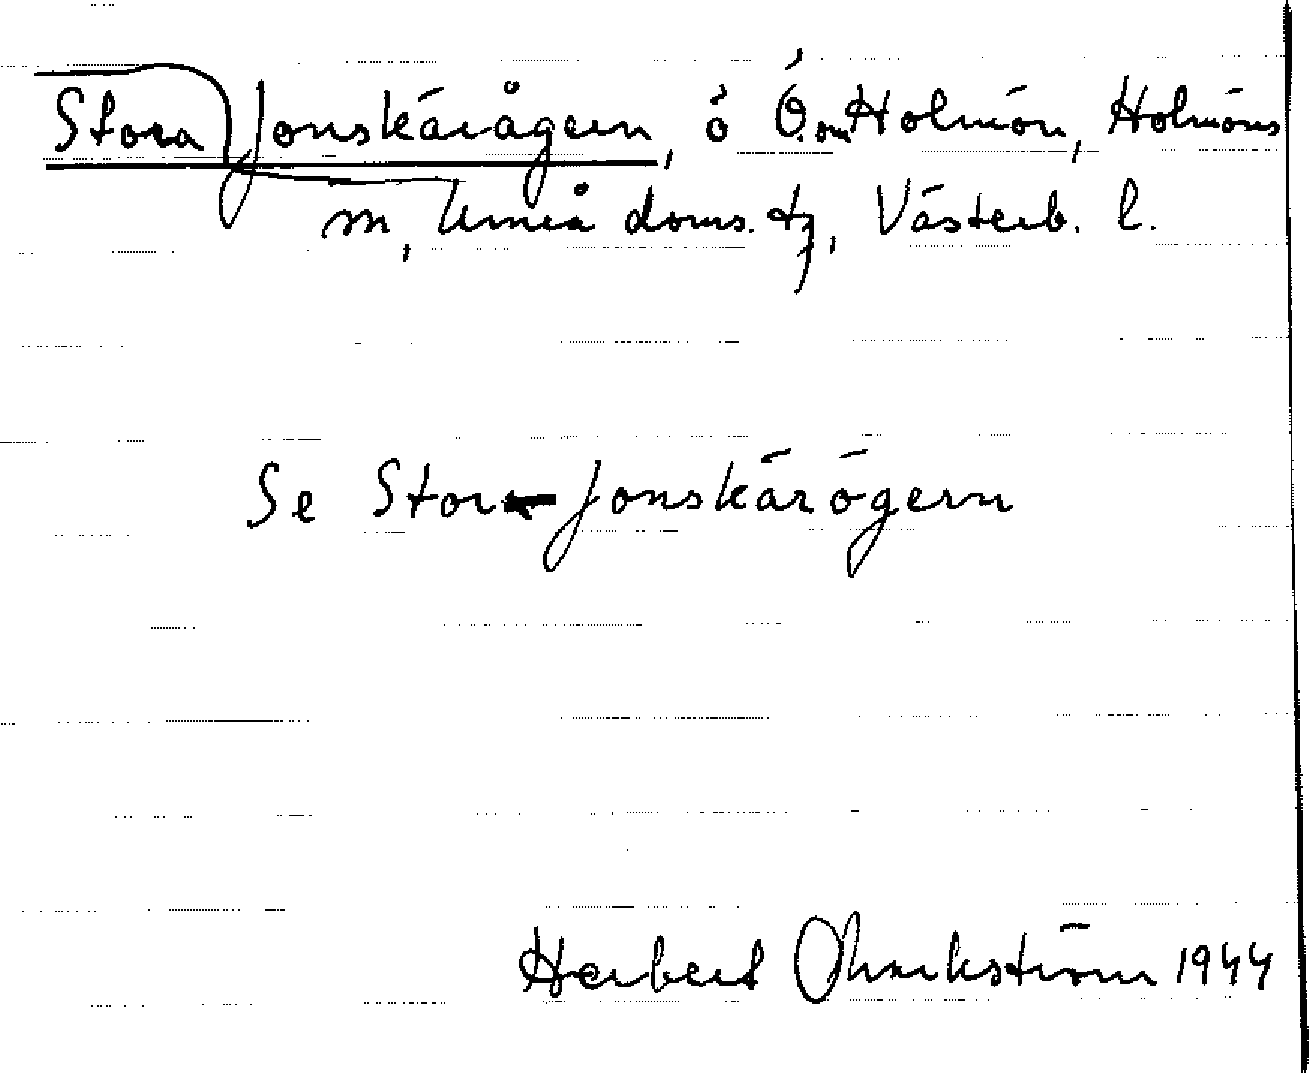 Stora Jonskärågern, ö Ö. om Holmön, Holmöns
m, Umeå doms. tg, Västerb. l.
Se Stor Jonskärögern
Herbert 1944